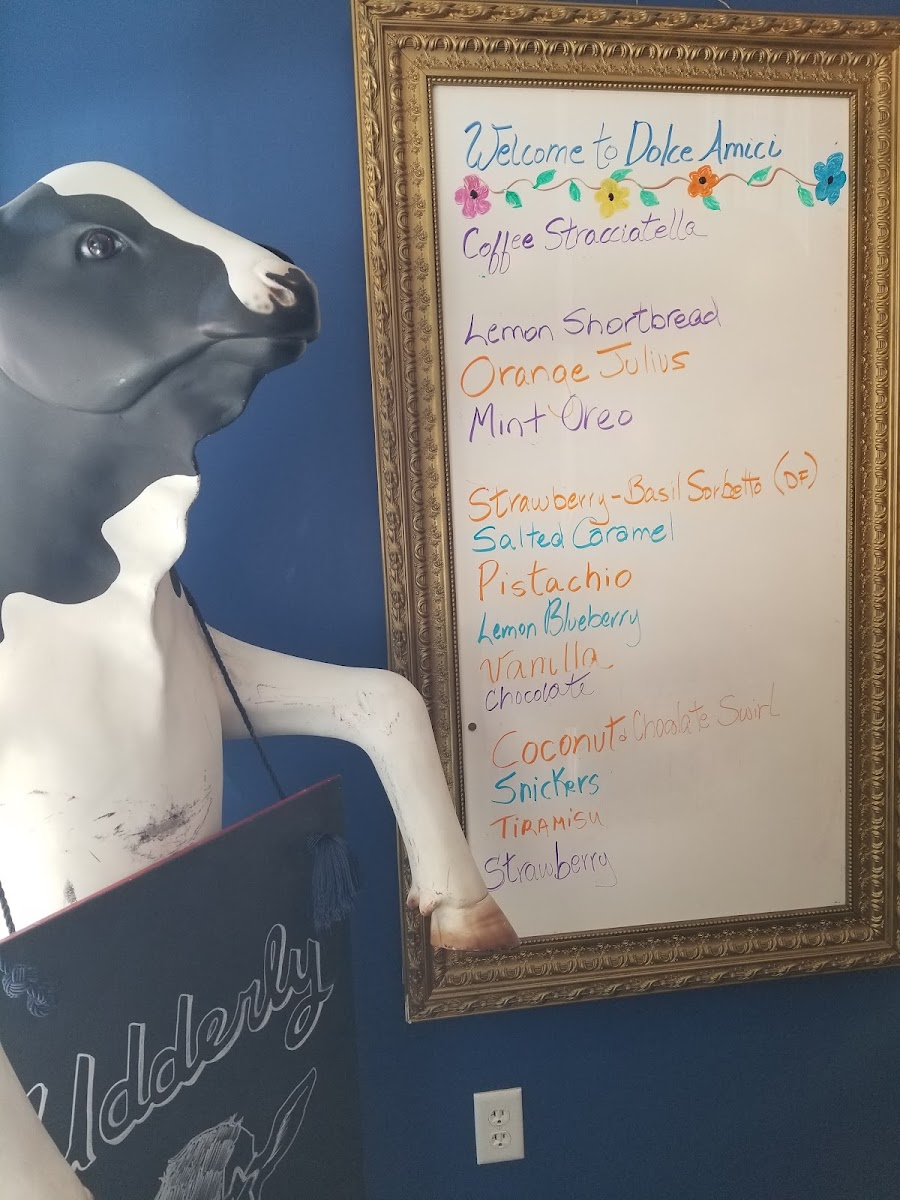 Welcome to Dolce Amici
Coffee Stracciatella
Lemon Shortbread
Orange Julius
Mint Oreo
Strawberry-Basil Sorbetto (DF)
Salted Caramel
Pistachio
Lemon Blueberry
Vanilla
Chocolate
Coconut & Chocolate Swirl
Snickers
TIRAMISU
Strawberry
Udderly